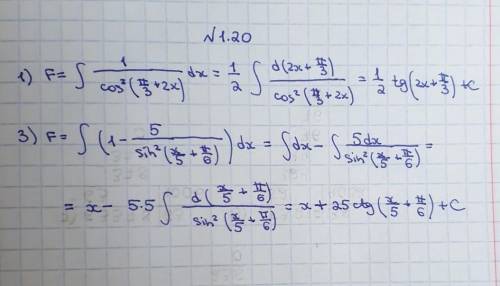 №1.20
1) F= ∫ 1/cos²(π/3+2x) dx = 1/2 ∫ d(2x+π/3)/cos²(π/3+2x) = 1/2 tg(2x+π/3)+C
3) F= ∫ (1- 5/sin²(x/5+π/6)) dx = ∫dx - ∫ 5dx/sin²(x/5+π/6) =
= x - 5·5 ∫ d(x/5+π/6)/sin²(x/5+π/6) = x + 25 ctg(x/5+π/6)+C